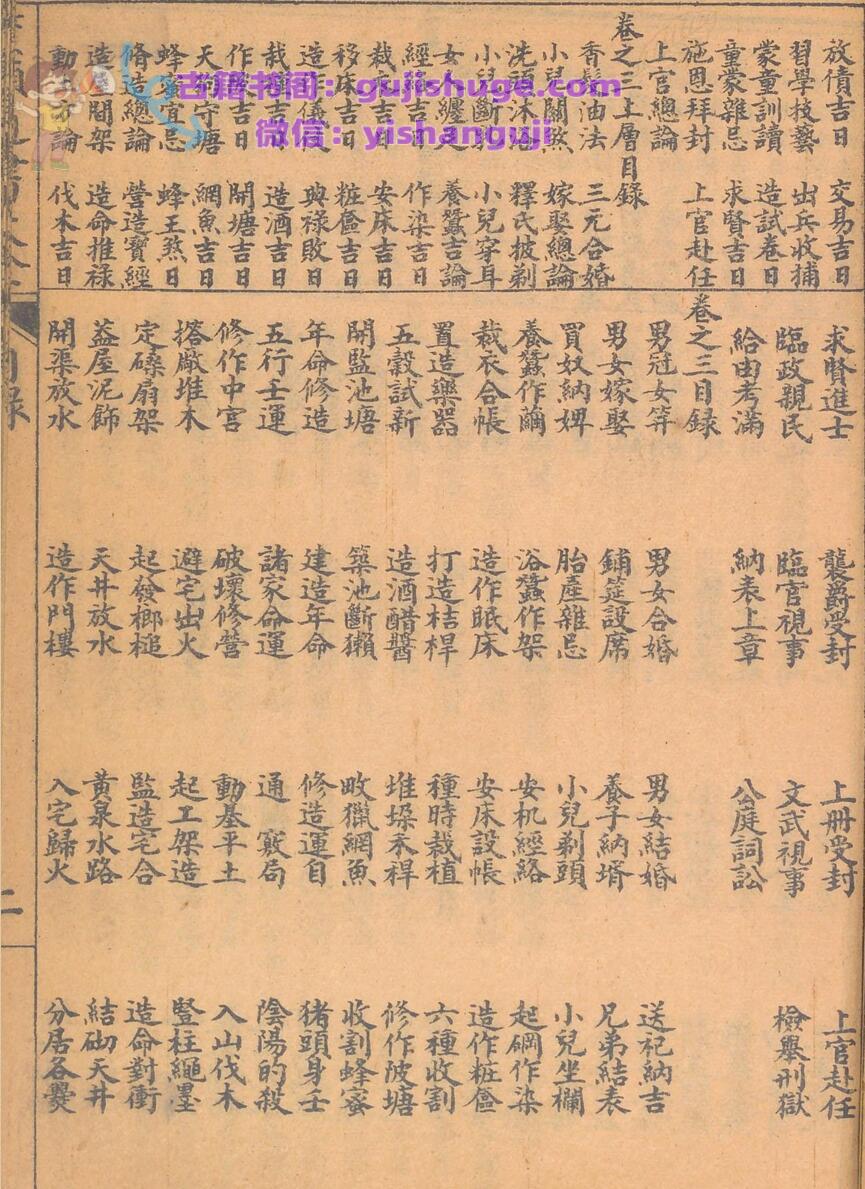 放債吉日 交易吉日
習學技藝 出兵收捕
蒙童訓讀 造試卷日
童蒙雜忌 求賢吉日
施恩拜封 上官赴任
上官總論
卷之三上層目錄
香髮油法 三元合婚
小兒關煞 嫁娶總論
洗頭沐浴 釋氏披剃
小兒斷 小兒穿耳
女纏 養蠶吉論
經絡吉日 作染吉日
栽衣吉日 安床吉日
移床吉日 粧奩吉日
造儀 與祿敗日
栽 吉 造酒吉日
作 吉日 開塘吉日
天 守塘 網魚吉日
蜂蜜宜忌 蜂王煞日
脩造總論 營造寶經
造 間架 造命推祿
動 論 伐木吉日
求賢進士 襲爵受封 上册受封 上官赴任
臨政親民 臨官視事 文武視事 檢舉刑獄
給由考滿 納表上章 公庭詞訟
卷之三目錄
男冠女笄 男女合婚 男女結婚 送祀納吉
男女嫁娶 鋪筵設席 養子納壻 兄弟結表
買奴納婢 胎產雜忌 小兒剃頭 小兒坐欄
養蠶作繭 浴蠶作架 安机經絡 起鋼作染
栽衣合帳 造作眠床 安床設帳 造作粧奩
置造樂器 打造桔桿 種時栽植 六種收割
五穀試新 造酒醋醬 堆垜禾稈 修作陂塘
開監池塘 築池斷獺 畋獵網魚 收割蜂蜜
年命修造 建造年命 修造運白 猪頭身壬
五行壬運 諸家命運 通竅局 陰陽的殺
修作中宮 破壞修營 動基平土 入山伐木
搭廠堆木 避宅出火 起工架造 豎柱繩墨
定磉扇架 起發榔槌 監造宅合 造命對衝
蓋屋泥飾 天井放水 黃泉水路 結砌天井
開渠放水 造作門樓 入宅歸火 分居各爨
目錄
二
古籍书阁：gujishuge.com
微信：yishanguji